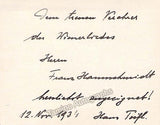 Dem treuen Verehrer
des Wienerliedes
Herrn
Franz Hammerschmidt
herzlichst zugeeignet!
12. Nov. 1931 Hans